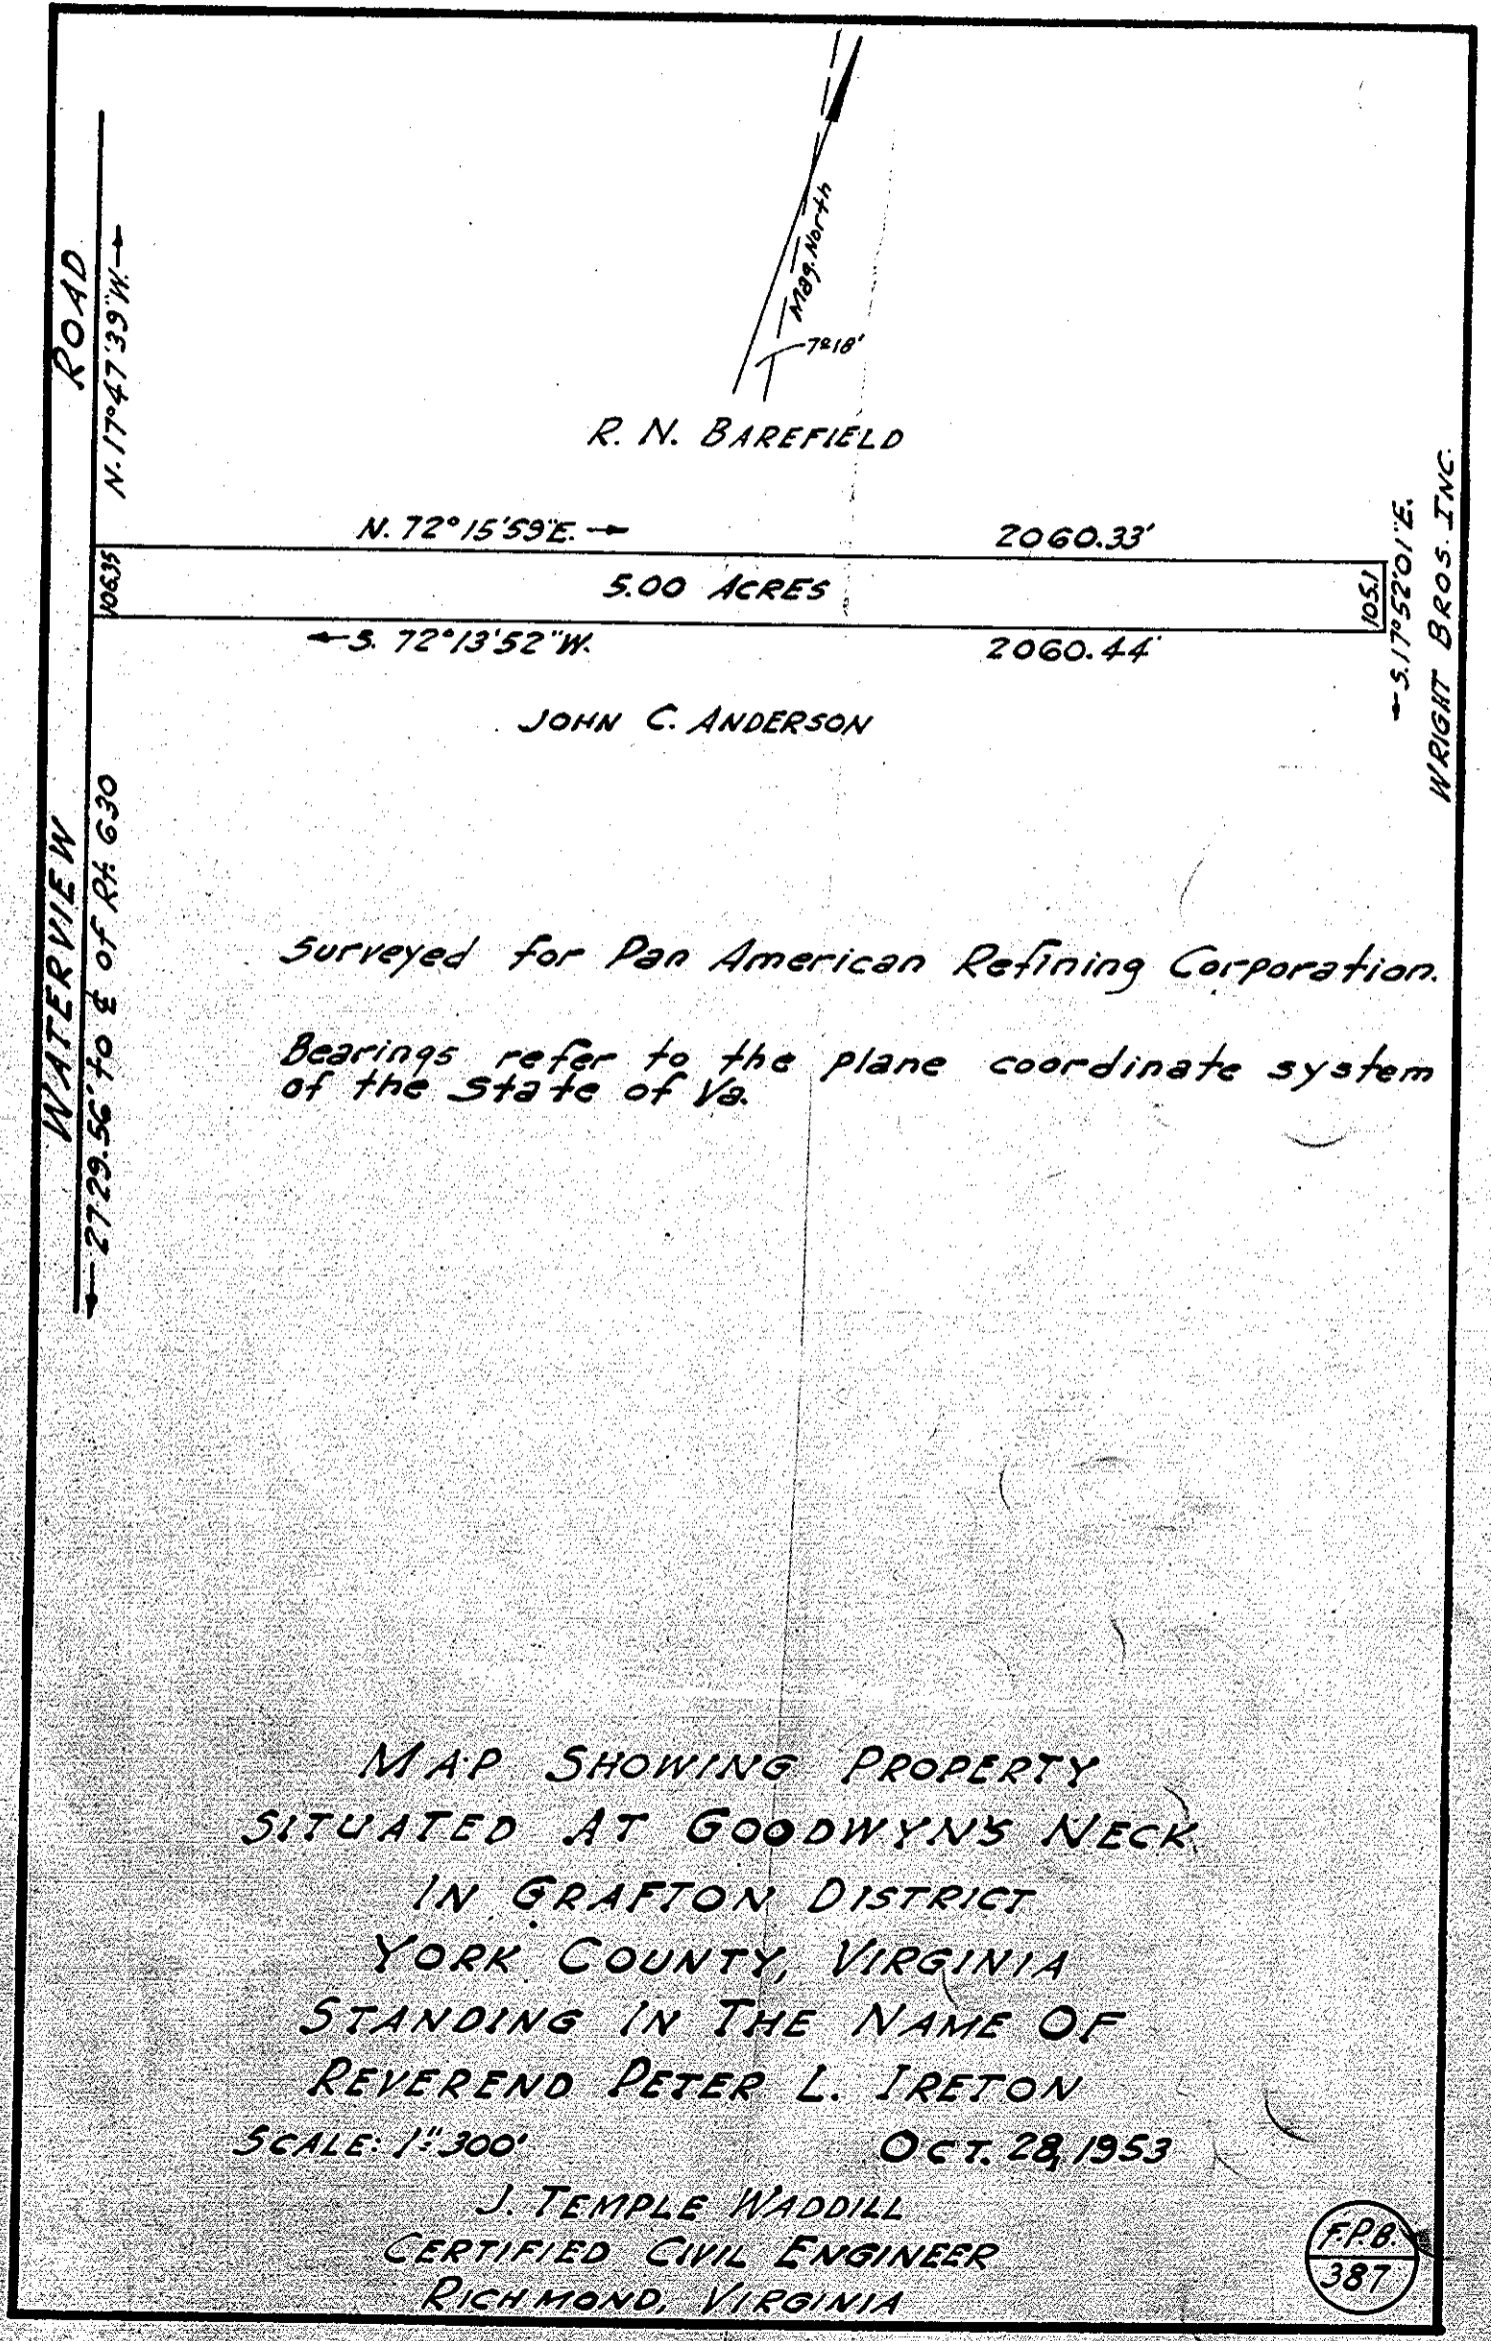 Mag. North
7°18'
ROAD
N.17°47'39"W.
R. N. BAREFIELD
N. 72°15'59"E.
2060.33'
106.35
5.00 ACRES
105.1
S.17°52'01"E.
WRIGHT BROS. INC.
S. 72°13'52"W.
2060.44'
JOHN C. ANDERSON
WATERVIEW
2729.56' to ℄ of Rt. 630
Surveyed for Pan American Refining Corporation.
Bearings refer to the plane coordinate system
of the State of Va.
MAP SHOWING PROPERTY
SITUATED AT GOODWYN'S NECK
IN GRAFTON DISTRICT
YORK COUNTY, VIRGINIA
STANDING IN THE NAME OF
REVEREND PETER L. IRETON
SCALE: 1"=300'
OCT. 28, 1953
J. TEMPLE WADDILL
CERTIFIED CIVIL ENGINEER
RICHMOND, VIRGINIA
F.P.B.
387